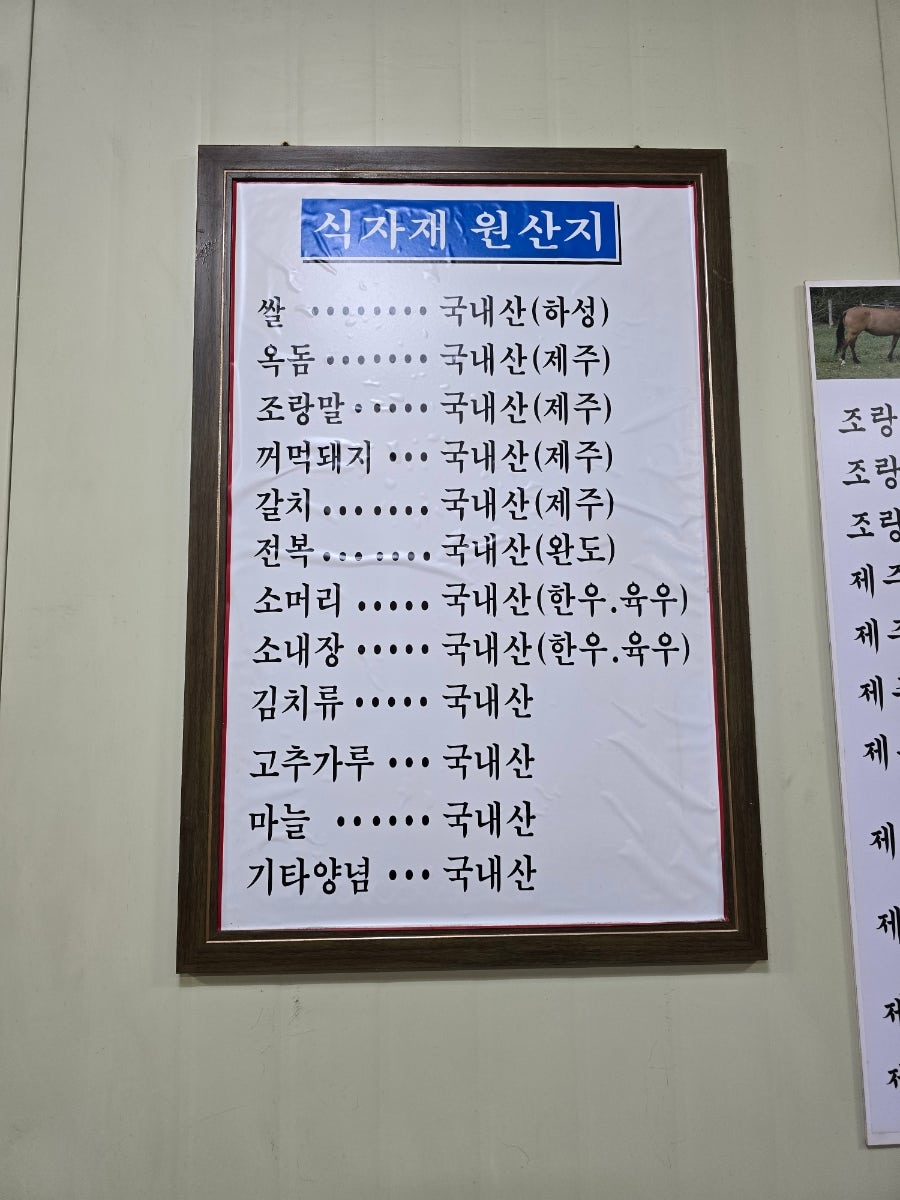 식자재 원산지
쌀 ········ 국내산(하성)
옥돔 ······· 국내산(제주)
조랑말 ····· 국내산(제주)
꺼먹돼지 ··· 국내산(제주)
갈치 ······· 국내산(제주)
전복 ······· 국내산(완도)
소머리 ····· 국내산(한우.육우)
소내장 ····· 국내산(한우.육우)
김치류 ····· 국내산
고추가루 ··· 국내산
마늘 ······ 국내산
기타양념 ··· 국내산
조랑
조랑
조랑
제주
제주
제
제
제
제
제